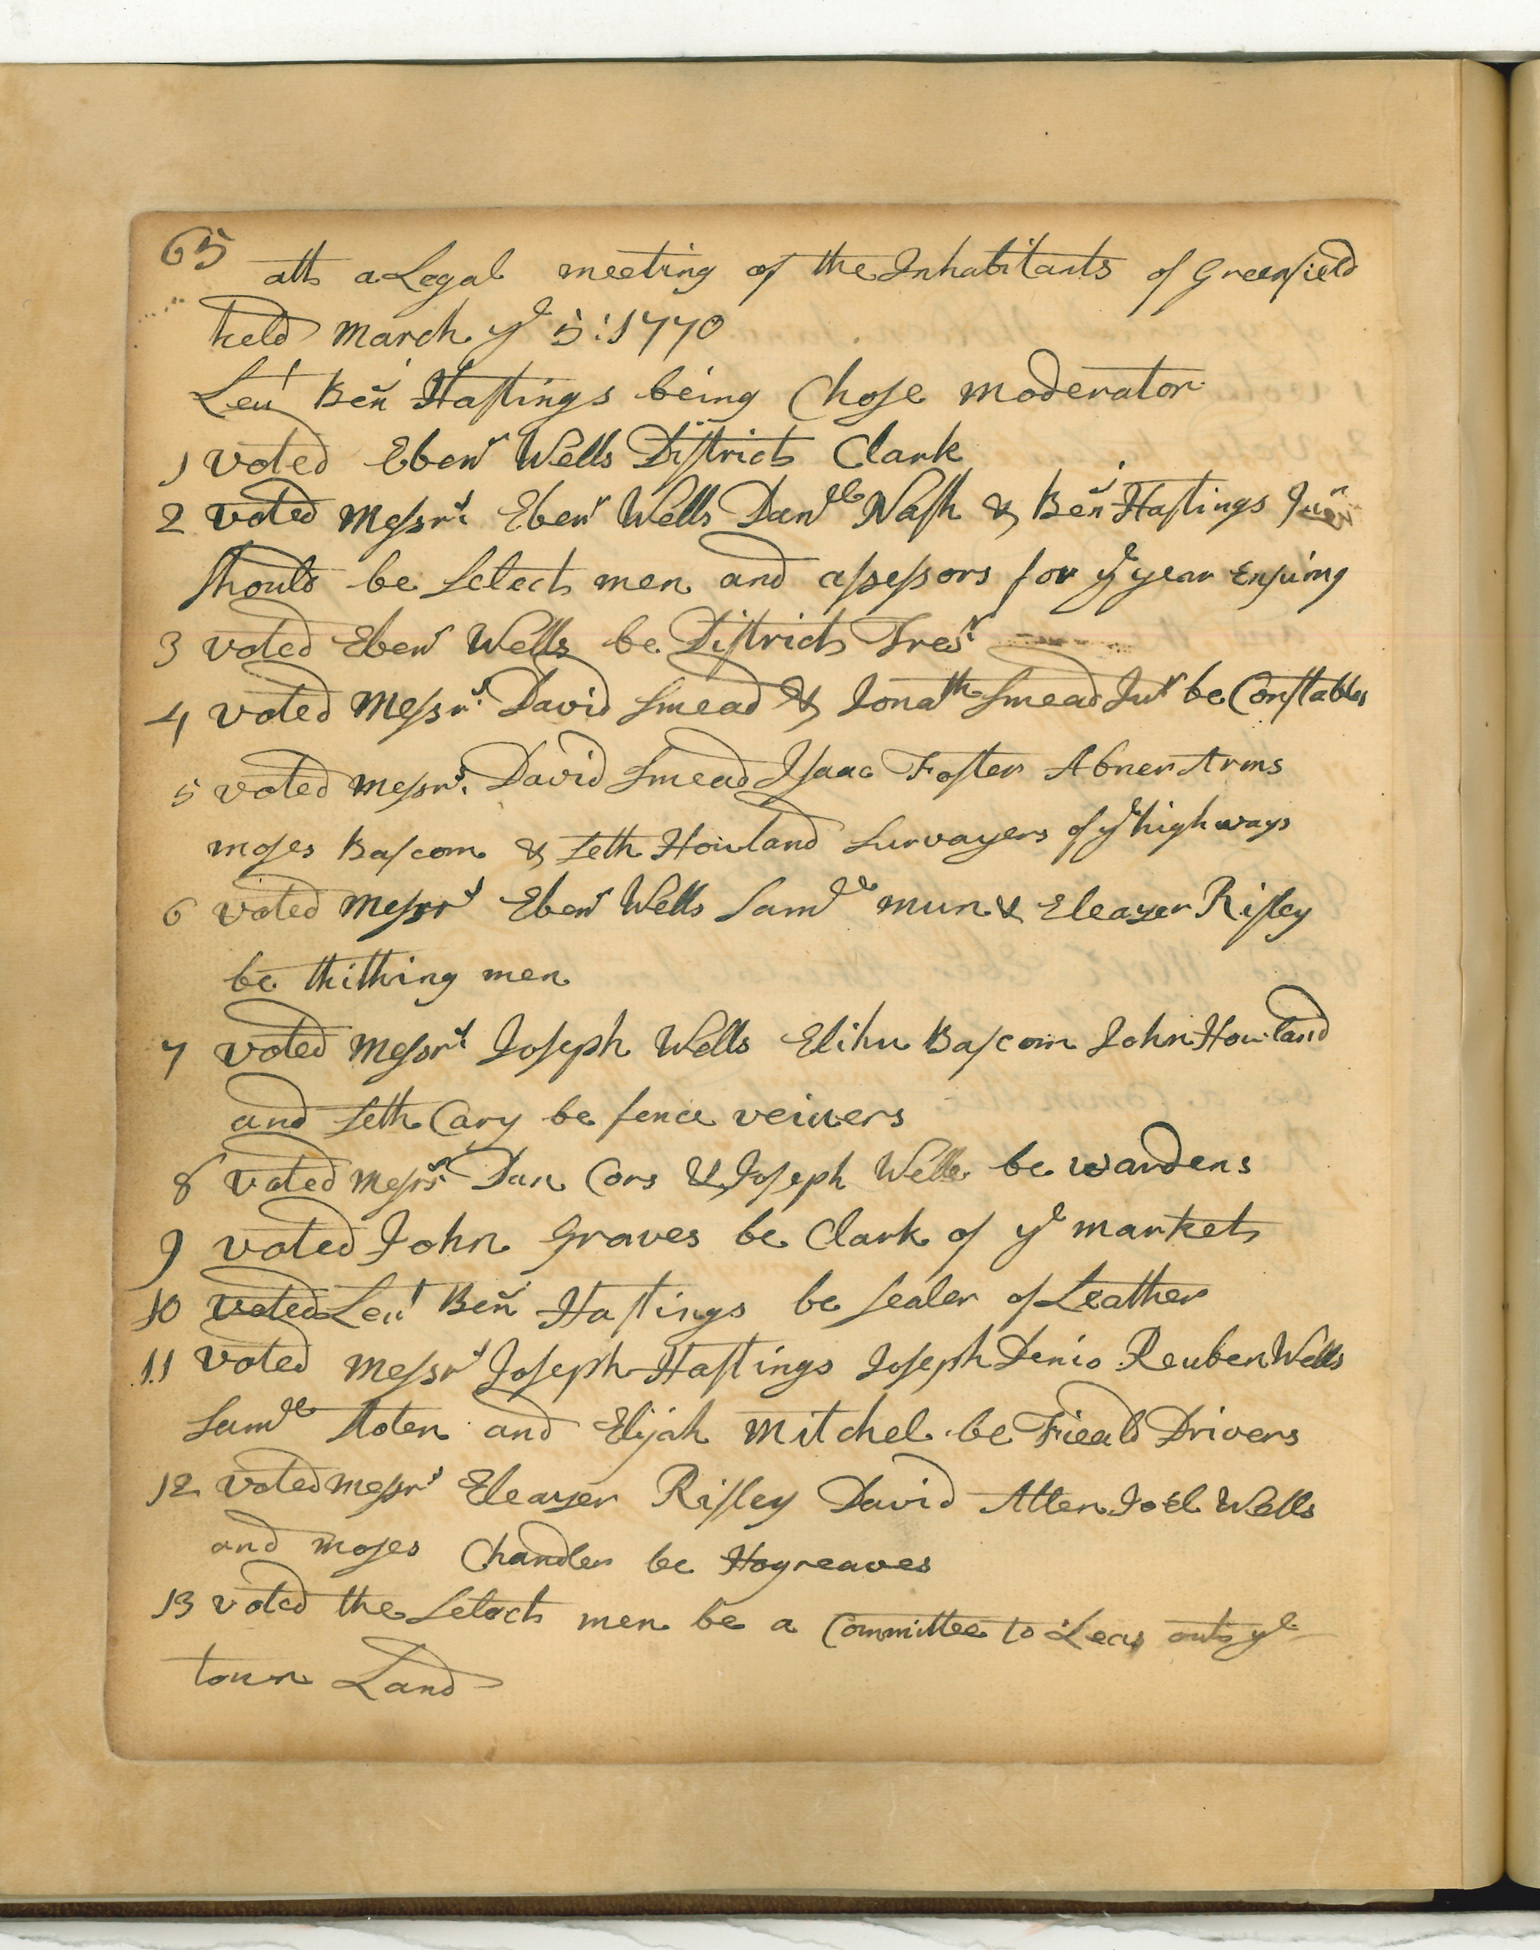 65
att a Legal meeting of the Inhabitants of Greenfield
held march ye 5: 1770
Leut Benn Hastings being Chose moderator
1 voted Ebenr Wells District Clark
2 voted Messrs Ebenr Wells Danll Nash & Benn Hastings Junr
should be Select men and assessors for ye year Ensuing
3 voted Ebenr Wells be District Tresr
4 voted Messrs David Smead & Jonath Smead Junr be Constables
5 voted Messrs David Smead Isaac Foster Abner Arms
moses Bascom & Seth Howland Survayers of ye high ways
6 voted Messrs Ebenr Wells Samll mun & Eleazer Risley
be thithing men
7 voted Messrs Joseph Wells Elihu Bascom John Howland
and Seth Cary be fence veiuers
8 voted Messrs Dan Cors & Joseph Wells be wardens
9 voted John Graves be Clark of ye market
10 voted Leut Benn Hastings be sealer of Leather
11 voted Messrs Joseph Hastings Joseph Denio Reuben Wells
Samll Stoten and Elijah Mitchel be Fieald Drivers
12 voted Messrs Eleazer Risley David Allen Joel Wells
and moses Chandler be Hogreaves
13 voted the Select men be a Committee to Leas out ye
town Land